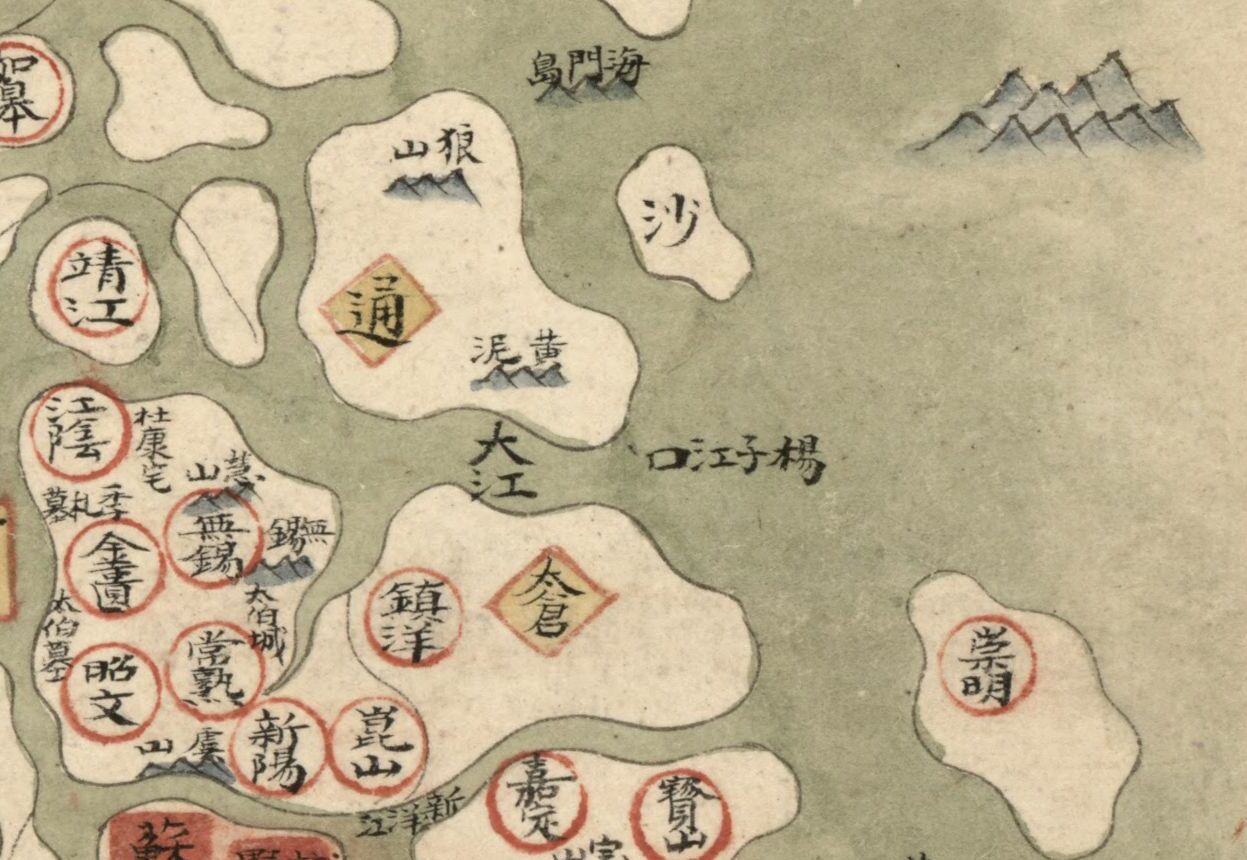 海門島
如皋
狼山
沙
靖江
通
黄泥
江陰
杜康宅
大江
楊子江口
慧山
季札墓
無錫
無錫
金匱
太倉
鎮洋
太伯城
太伯墓
常熟
昭文
崇明
新陽
崑山
虞山
嘉定
寶山
新洋江
蘇